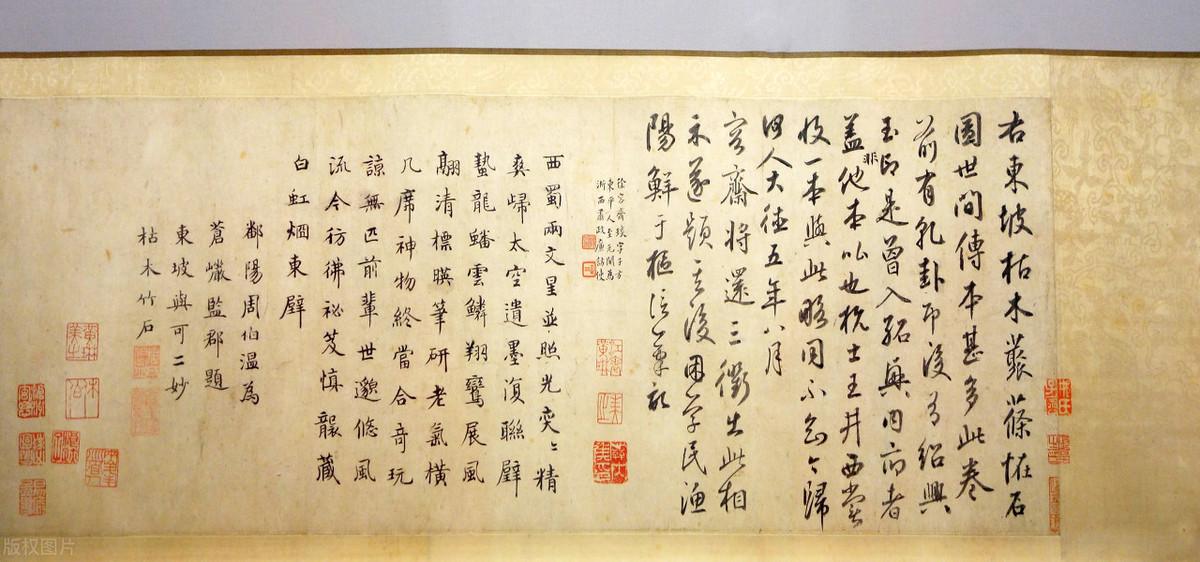 右東坡枯木叢篠恠石
圖世間傳本甚多此卷
前有乳卦印後有紹興
玉印是曾入紹興内府者
盖非他本比也杭士王井西嘗
收一本與此略同不知今歸
何人大德五年八月
容齋將還三衢出此相
示遂題其後困學民漁
陽鮮于樞信筆記
徐容齋琰字子方
東平人至元間為
浙西肅政廉訪使
西蜀兩文星並照光奕〻精
爽歸太空遺墨復聯璧
蟄龍蟠雲鱗翔鸞展風
翮清標暎筆研老氣橫
几席神物終當合奇玩
諒無匹前輩世邈悠風
流今彷彿祕笈慎襲藏
白虹烟東壁
鄱陽周伯溫為
蒼巘監郡題
東坡與可二妙
枯木竹石
版权图片